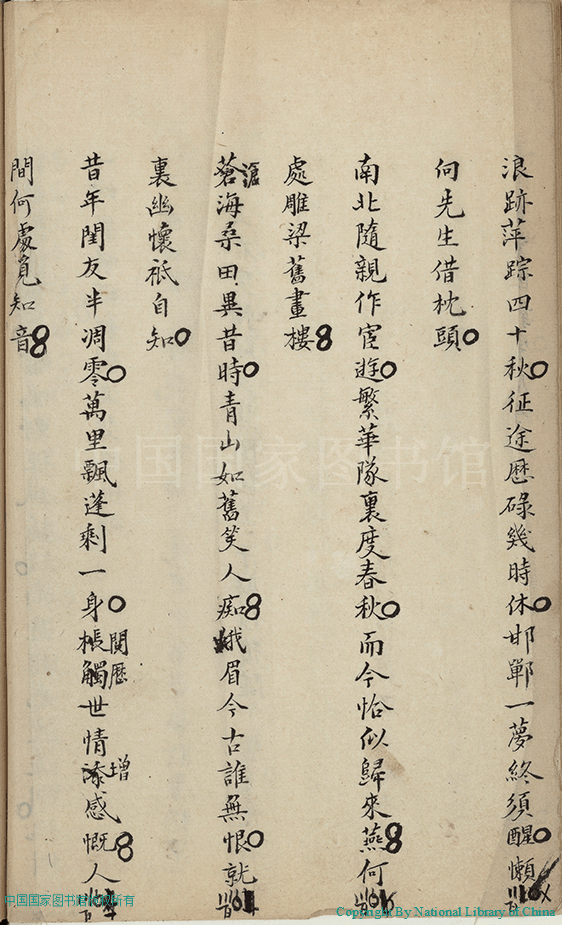 浪跡萍踪四十秋征途歷碌幾時休邯鄲一夢終須醒懶
向先生借枕頭
南北隨親作宦遊繁華隊裏度春秋而今恰似歸來燕何
處雕梁舊畫樓
滄
蒼海桑田異昔時青山如舊笑人痴蛾眉今古誰無恨就
裏幽懷祇自知
昔年閨友半凋零萬里飄蓬剩一身棖觸世情添感慨人
閱歷
增
間何處覓知音
中国国家图书馆
中国国家图书馆版权所有
Copyright By National Library of China